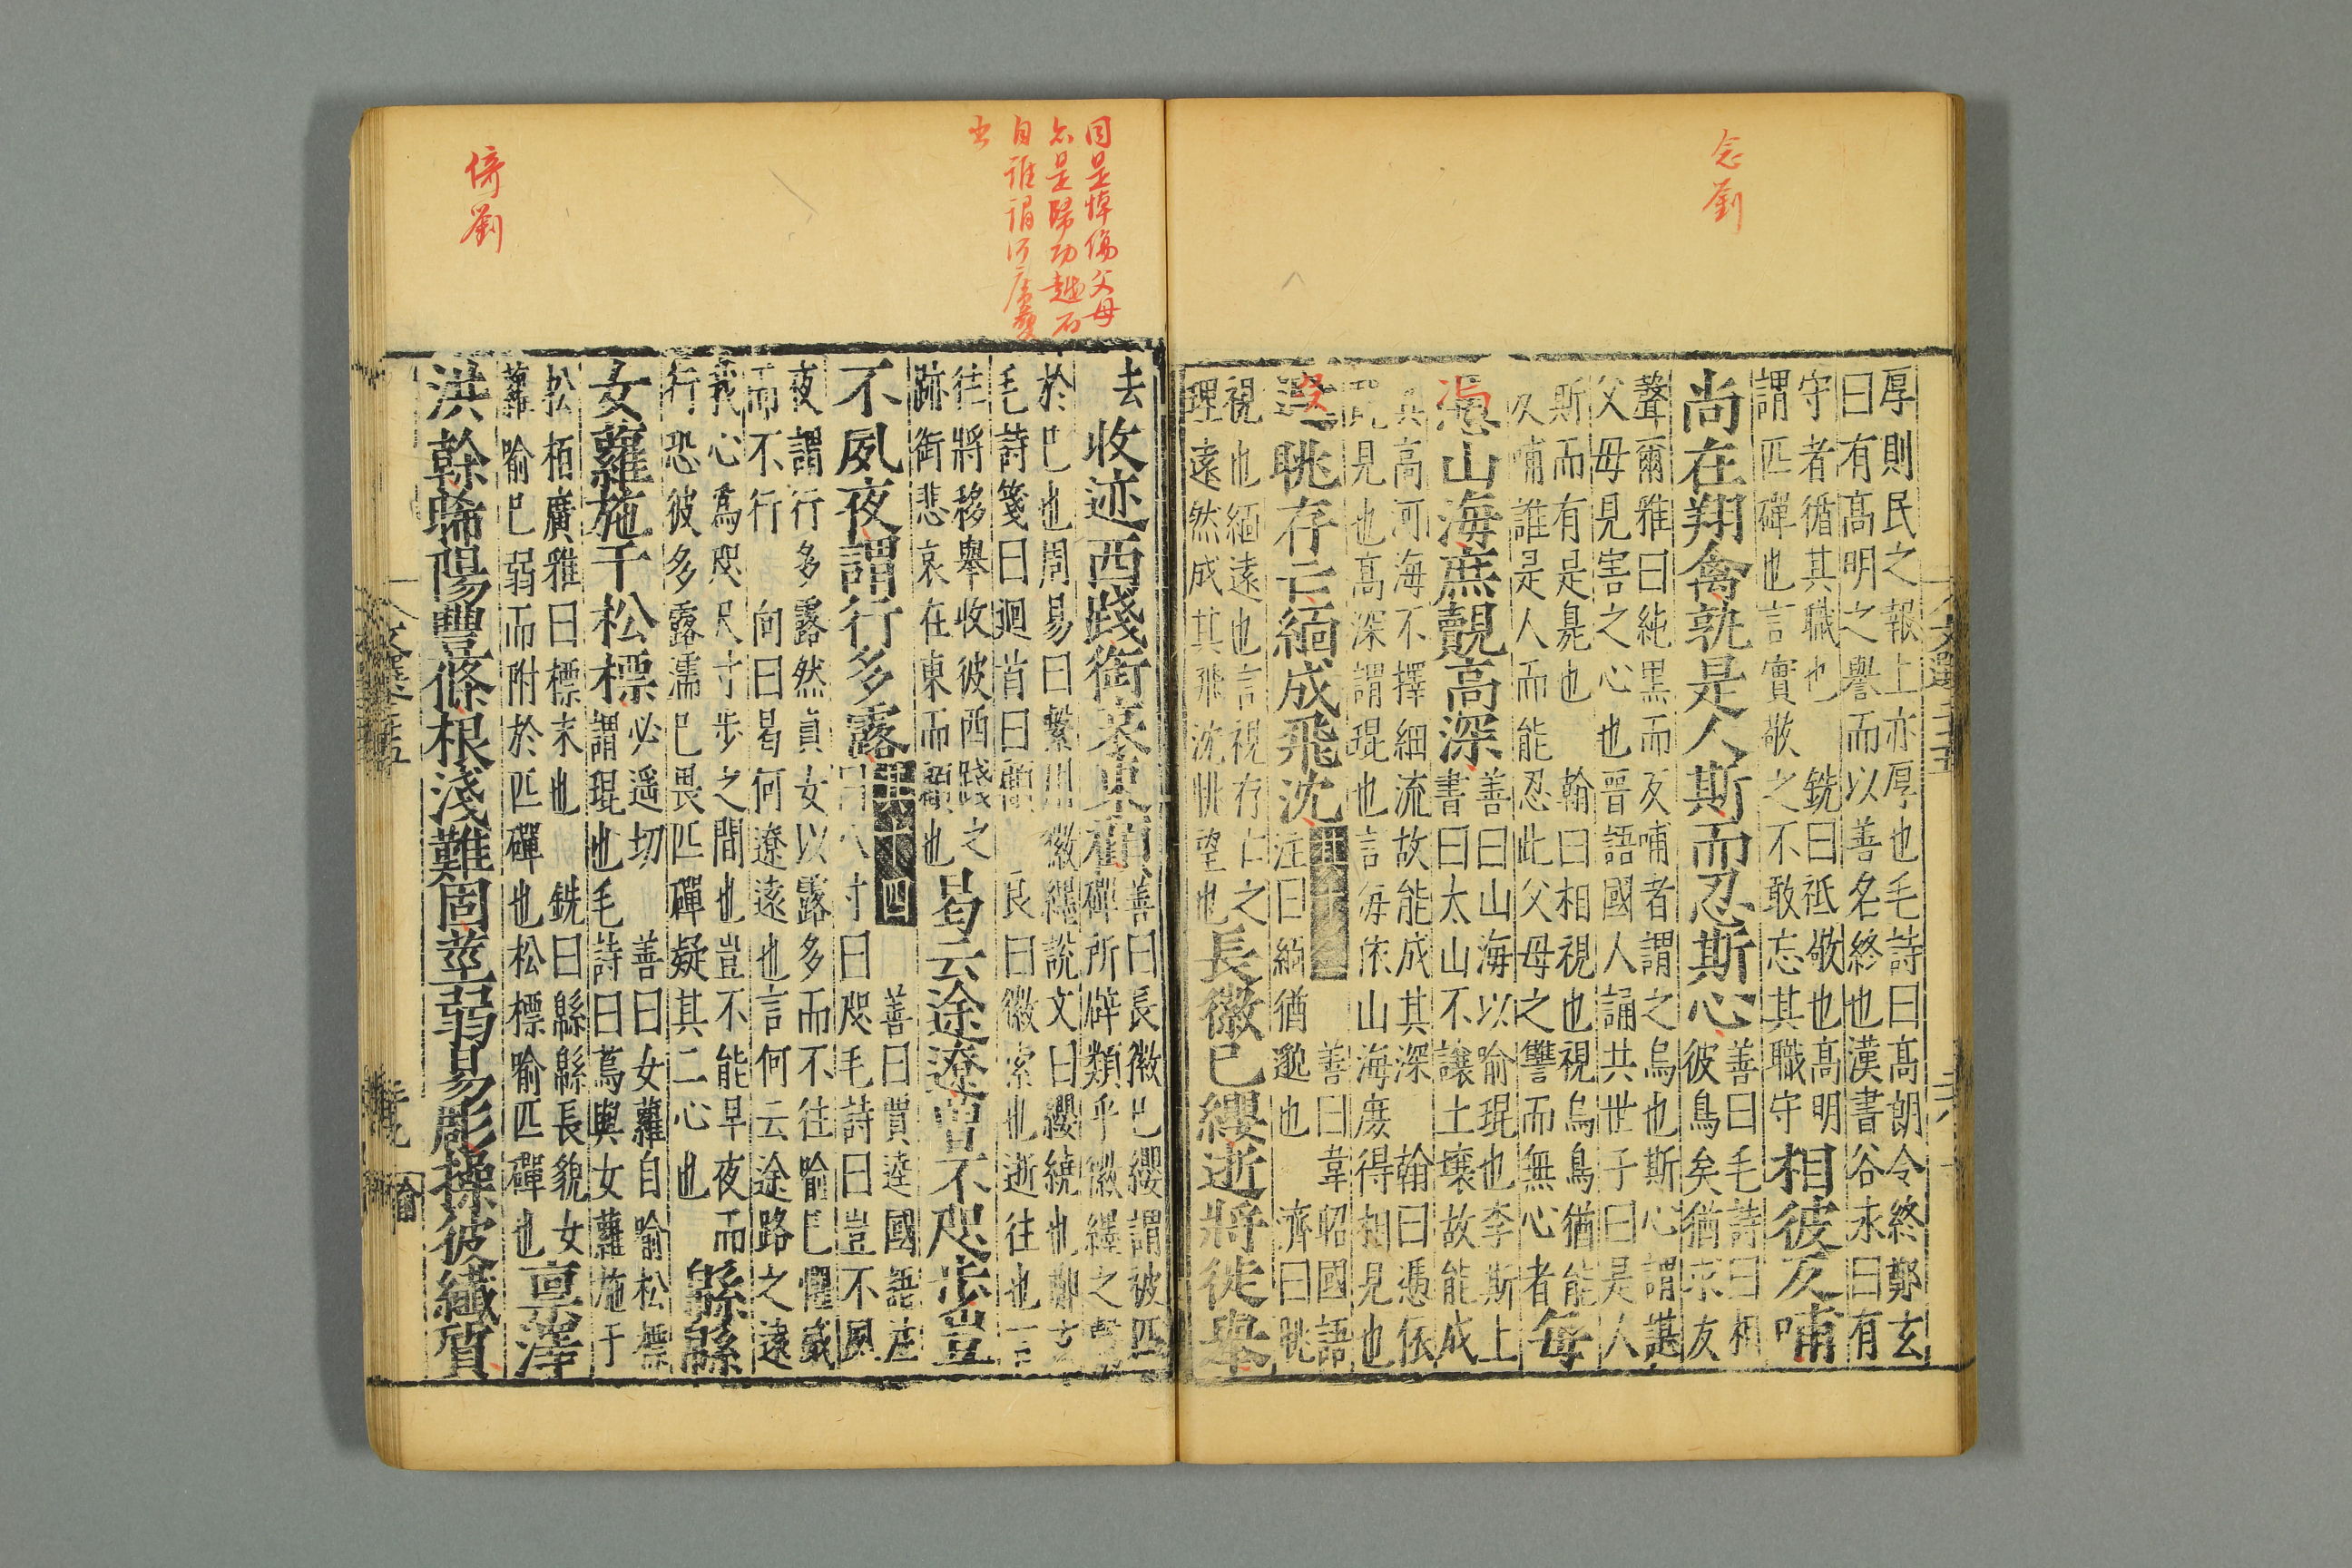 念劉
厚則民之報上亦厚也毛詩曰高朗令終鄭玄
曰有高明之譽而以善名終也漢書谷永曰有
守者循其職也 銑曰祗敬也高明
謂匹磾也言實敬之不敢忘其職守
相彼反哺
尚在翔禽孰是人斯而忍斯心
善曰毛詩曰相
彼鳥矣猶求友
聲爾雅曰純黑而反哺者謂之烏也斯心謂謀
父母見害之心也晉語國人誦共世子曰是人
斯而有是臭也 翰曰相視也視烏鳥猶能
反哺誰是人而能忍此父母之讐而無心者
每
憑山海庶覿高深
善曰山海以喻琨也李斯上
書曰太山不讓土壤故能成
其高河海不擇細流故能成其深 翰曰憑依
琨見也高深謂琨也言每依山海庶得相見也
遐眺存亡緬成飛沈
其十三
善曰韋昭國語
注曰緬猶邈也 濟曰眺
視也緬遠也言視存亡之
理遠然成其飛沈眺望也
長徽已纓逝將徙舉
同是悼傷父母
亦是歸功越石
自誰謂河廣變
出
去
收迹西踐銜哀東顧
善曰長徽已纓謂被匹
磾所辟類乎徽纆之繫
於已也周易曰繫用徽纆說文曰纓繞也鄭玄
毛詩箋曰迴首曰顧 良曰徽索也逝往也言
往將移舉收彼西踐之
跡銜悲哀在東而顧也
曷云途遼曾不咫步豈
不夙夜謂行多露
其十四
善曰賈逵國語注
曰八寸曰咫毛詩曰豈不夙
夜謂行多露然貞女以露多而不往喻己懼威
而不行 向曰曷何遼遠也言何云途路之遠
我心爲咫尺寸步之間也豈不能早夜而
行恐彼多露濡已畏匹磾疑其二心也
緜緜
女蘿施于松標
必遥切 善曰女蘿自喻松標
謂琨也毛詩曰蔦與女蘿施于
松栢廣雅曰標末也 銑曰緜緜長貌女
蘿喻已弱而附於匹磾也松標喻匹磾也
稟澤
洪幹晞陽豐條根淺難固莖弱易彫操彼纖質
倚劉